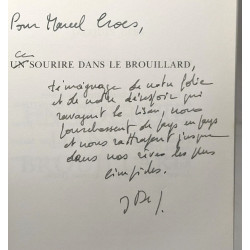 Pour Marcel Croës,
ce
UN SOURIRE DANS LE BROUILLARD,
témoignage de notre folie
et de notre désespoir qui
ravagent le Liban, nous
pourchassent de pays en pays
et nous rattrapent jusque
dans nos rêves les plus
limpides.